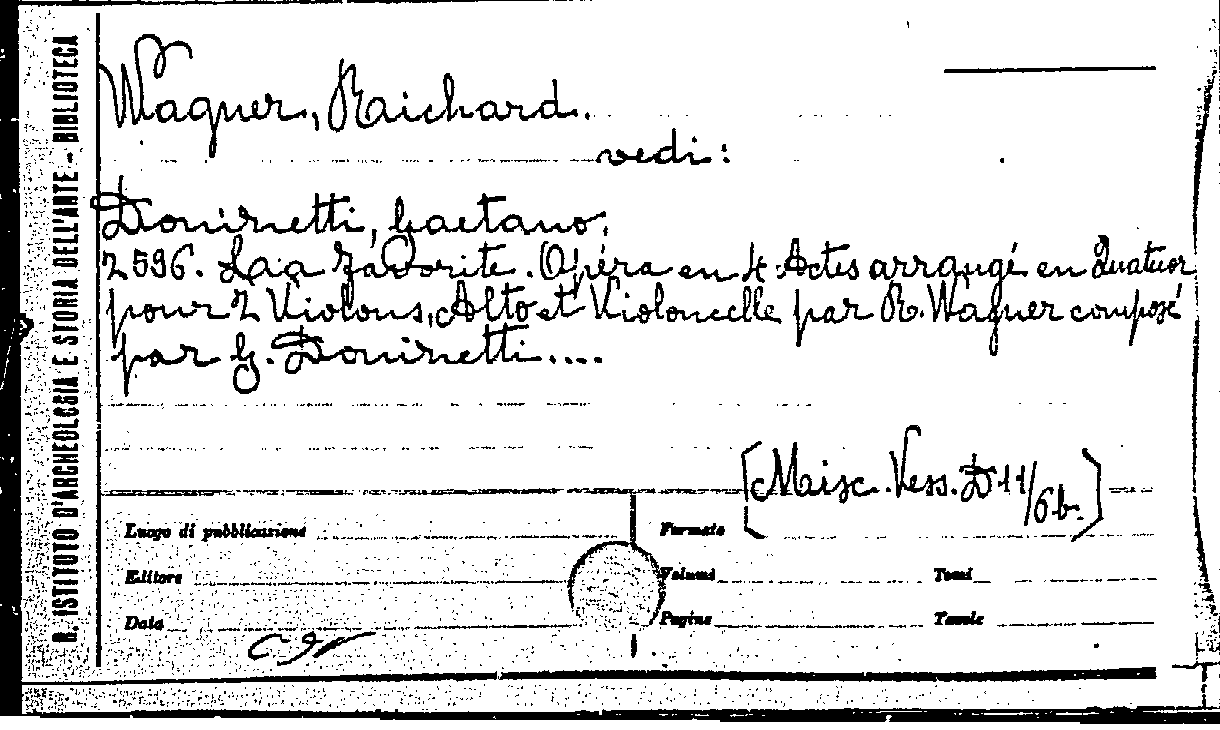 R. ISTITUTO D'ARCHEOLOGIA E STORIA DELL'ARTE - BIBLIOTECA
Wagner, Raichard.
vedi:
Donizetti, Gaetano.
2596. Laa Favorite. Opéra en 4 Actes arrangé en Quatuor
pour 2 Violons, Alto et Violoncelle par R. Wagner composé
par G. Donizetti....
[Misc. Vess. D 11/6b.]
Luogo di pubblicazione
Formato
Editore
Volumi
Tomi
Data
Pagine
Tavole